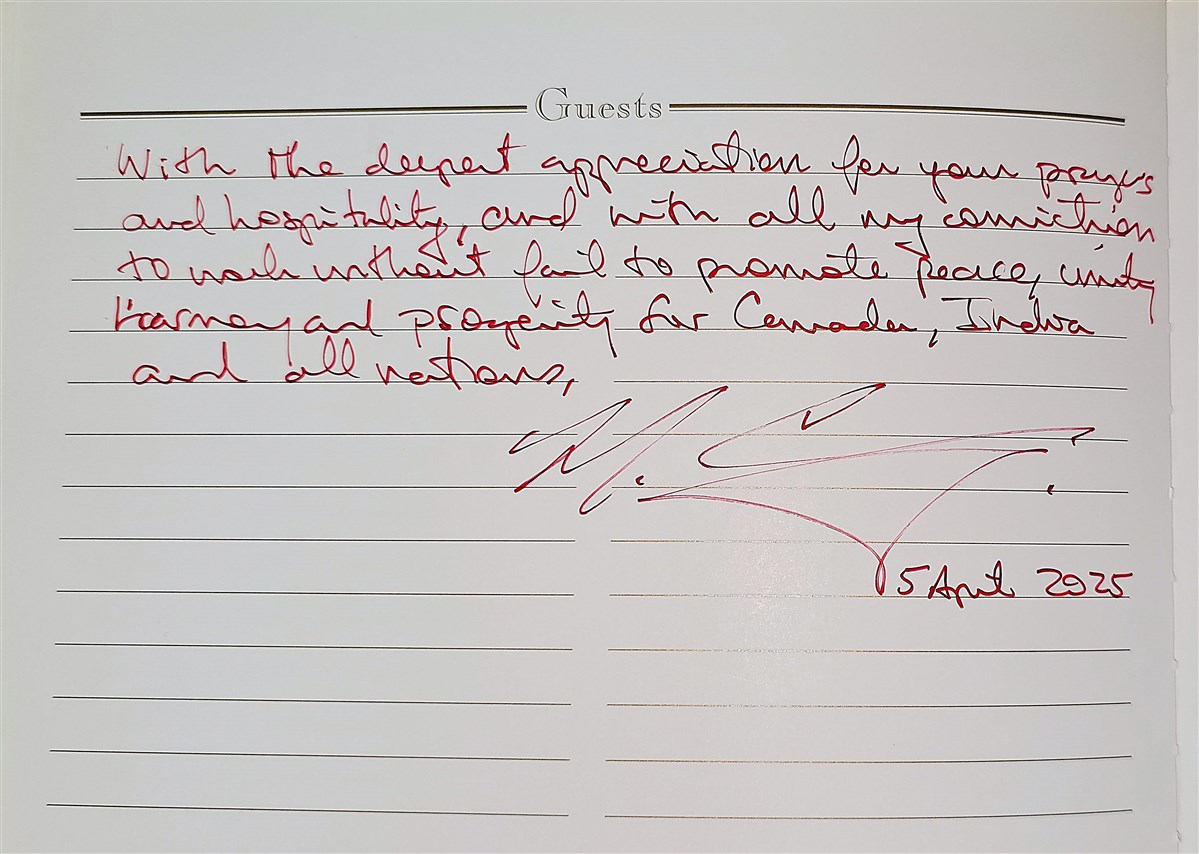 Guests
With the deepest appreciation for your prayers
and hospitality, and with all my conviction
to work without fail to promote peace, unity
harmony and prosperity for Canada, India
and all nations,
5 April 2025